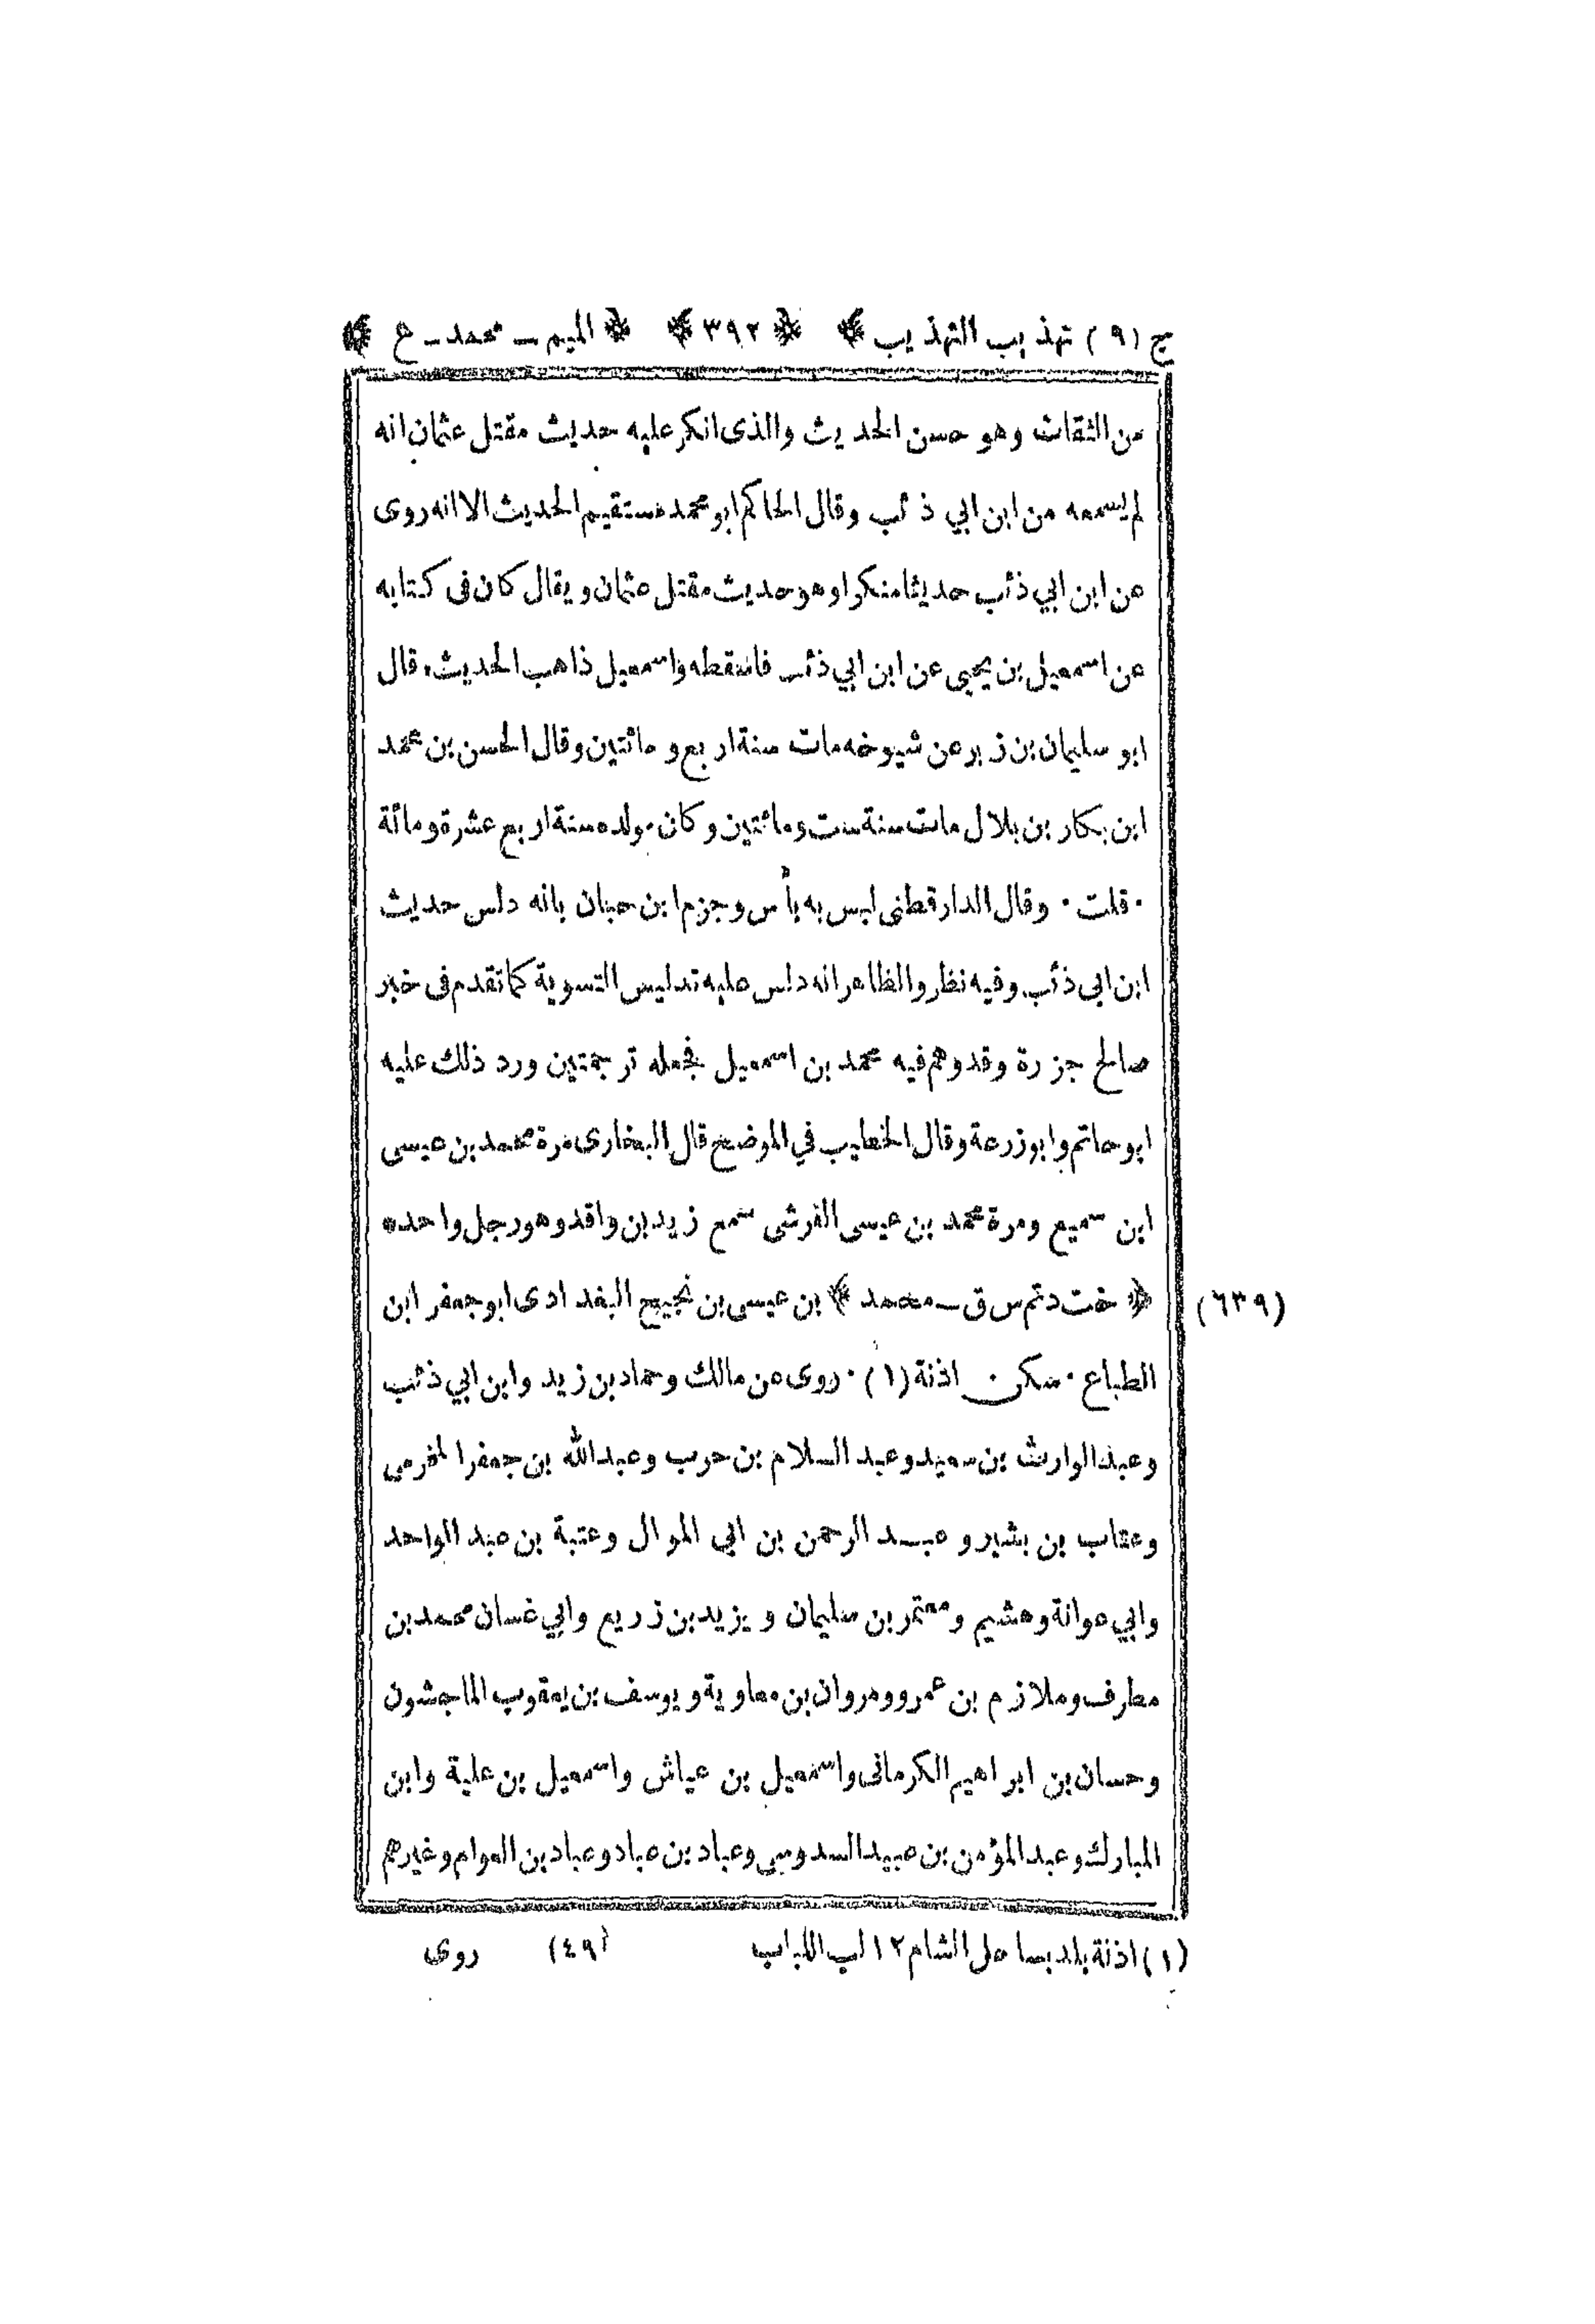 ج (٩) تهذيب التهذيب ﴾ ﴿ ٣٩٢ ﴾ ﴿ الميم ـ محمد ـ ع ﴾
من الثقات وهو حسن الحديث والذى انكر عليه حديث مقتل عثمان انه
لم يسمعه من ابن ابي ذئب وقال الحاكم ابو محمد مستقيم الحديث الا انه روى
عن ابن ابي ذئب حديثا منكرا وهو حديث مقتل عثمان ويقال كان فى كتابه
عن اسمعيل بن يحيى عن ابن ابي ذئب فاسقطه واسمعيل ذاهب الحديث. قال
ابو سليمان بن زبر عن شيوخه مات سنة اربع و مائتين وقال الحسن بن محمد
ابن بكار بن بلال مات سنة ست ومائتين وكان مولده سنة اربع عشرة ومائة
٠ قلت ٠ وقال الدار قطنى ليس به بأس وجزم ابن حبان بانه دلس حديث
ابن ابى ذئب وفيه نظر والظاهر انه دلس عليه تدليس التسوية كما تقدم فى خبر
صالح جزرة وقد وهم فيه محمد بن اسمعيل فجعله ترجمتين ورد ذلك عليه
ابو حاتم وابوزرعة وقال الخطيب في الموضح قال البخارى مرة محمد بن عيسى
ابن سميع ومرة محمد بن عيسى القرشى سمع زيد بن واقد وهو رجل واحد ه
﴿ خت د تم س ق ـ محمد ﴾ بن عيسى بن نجيح البغدادى ابو جعفر ابن
(٦٣٩)
الطباع ٠ سكن اذنة (١) ٠ روى عن مالك وحماد بن زيد وابن ابي ذئب
وعبد الوارث بن سعيد وعبد السلام بن حرب وعبدالله بن جعفر المخرمى
وعتاب بن بشير و عبد الرحمن بن ابى الموال وعتبة بن عبد الواحد
وابي عوانة وهشيم ومعتمر بن سليمان ويزيد بن زريع وابي غسان محمد بن
مطرف وملازم بن عمرو ومروان بن معاوية ويوسف بن يعقوب الماجشون
وحسان بن ابراهيم الكرمانى واسمعيل بن عياش واسمعيل بن علية وابن
المبارك وعبد المؤمن بن عبيد السدوسي وعباد بن عباد وعباد بن العوام وغيرهم
(١) اذنة بلد بساحل الشام ١٢ لب اللباب
(٤٩) روى